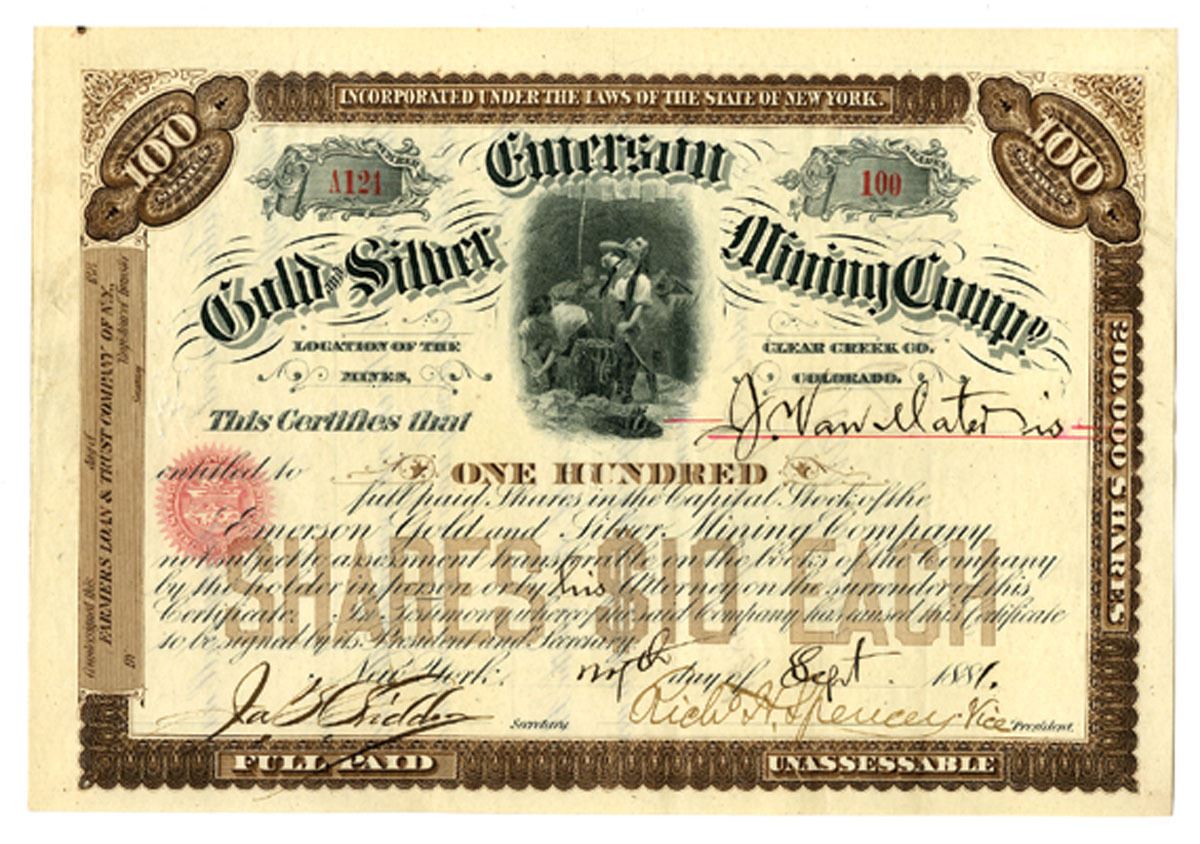 INCORPORATED UNDER THE LAWS OF THE STATE OF NEW YORK.
100
SHARES
100
SHARES
NUMBER
A124
SHARES
100
Emerson
Gold and Silver Mining Compy.
LOCATION OF THE MINES,
CLEAR CREEK CO. COLORADO.
This Certifies that J. Van Mater is
entitled to ONE HUNDRED
full paid Shares in the Capital Stock of the
Emerson Gold and Silver Mining Company
not subject to assessment transferable on the books of the Company
by the holder in person or by his Attorney on the surrender of this
Certificate. In Testimony whereof the said Company has caused this Certificate
to be signed by its President and Secretary
SHARES $10 EACH
New York, day of Sept. 1881.
Secretary
Rich'd H. Spencer Vice President.
FULL PAID
UNASSESSABLE
200,000 SHARES
Countersigned this day of 188
FARMERS LOAN & TRUST COMPANY OF N.Y.,
Registrar of Transfers
By Secretary